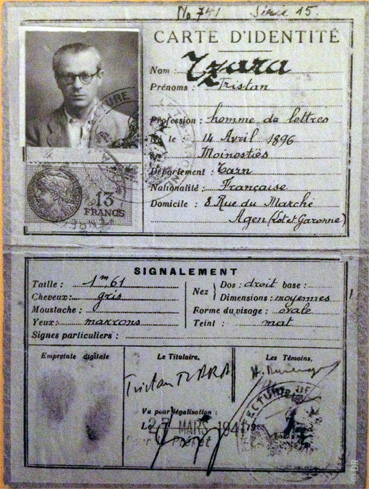 No 741 Série 15.
CARTE D'IDENTITÉ
Nom : Tzara
Prénoms : Tristan
Profession : homme de lettres
le 14 Avril 1896
Moinesties
Département : Tarn
Nationalité : Française
Domicile : 8 Rue du Marché
Agen (Lot et Garonne)
13
FRANCS
SIGNALEMENT
Taille : 1m61
Cheveux : gris
Moustache :
Yeux : marrons
Signes particuliers :
Nez
Dos : droit base :
Dimensions : moyennes
Forme du visage : ovale
Teint : mat
Empreinte digitale
Le Titulaire,
Tristan TZARA
Les Témoins,
Vu pour légalisation :
Le 27 MARS 1941